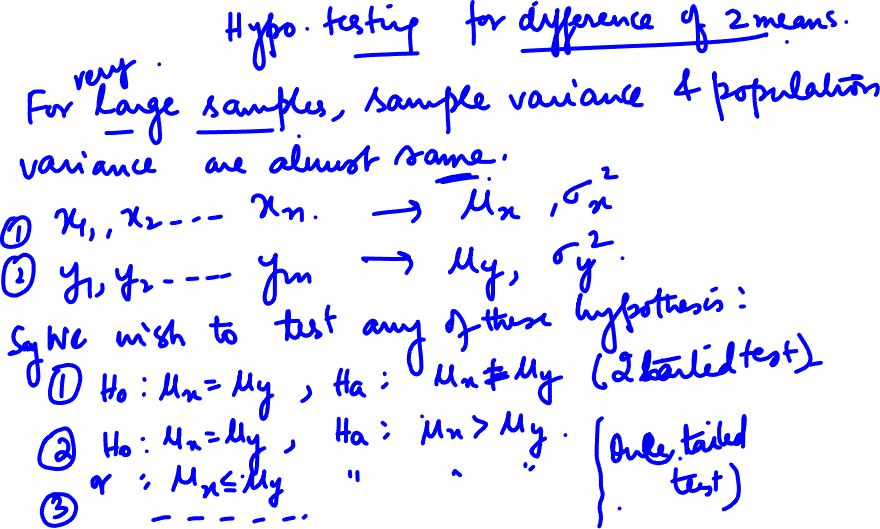 Hypo. testing for difference of 2 means.
very
For large samples, sample variance & population
variance are almost same.
① x₁, x₂ ---- xₙ. → μₓ, σₓ²
② y₁, y₂ ----- yₘ → μy, σy².
Say We wish to test any of these hypothesis:
① H₀ : μₓ = μy , Ha : μₓ ≠ μy (2 tailed test)
② H₀ : μₓ = μy , Ha : μₓ > μy . (One tailed
or : μₓ ≤ μy " " " test)
③ - - - - - .